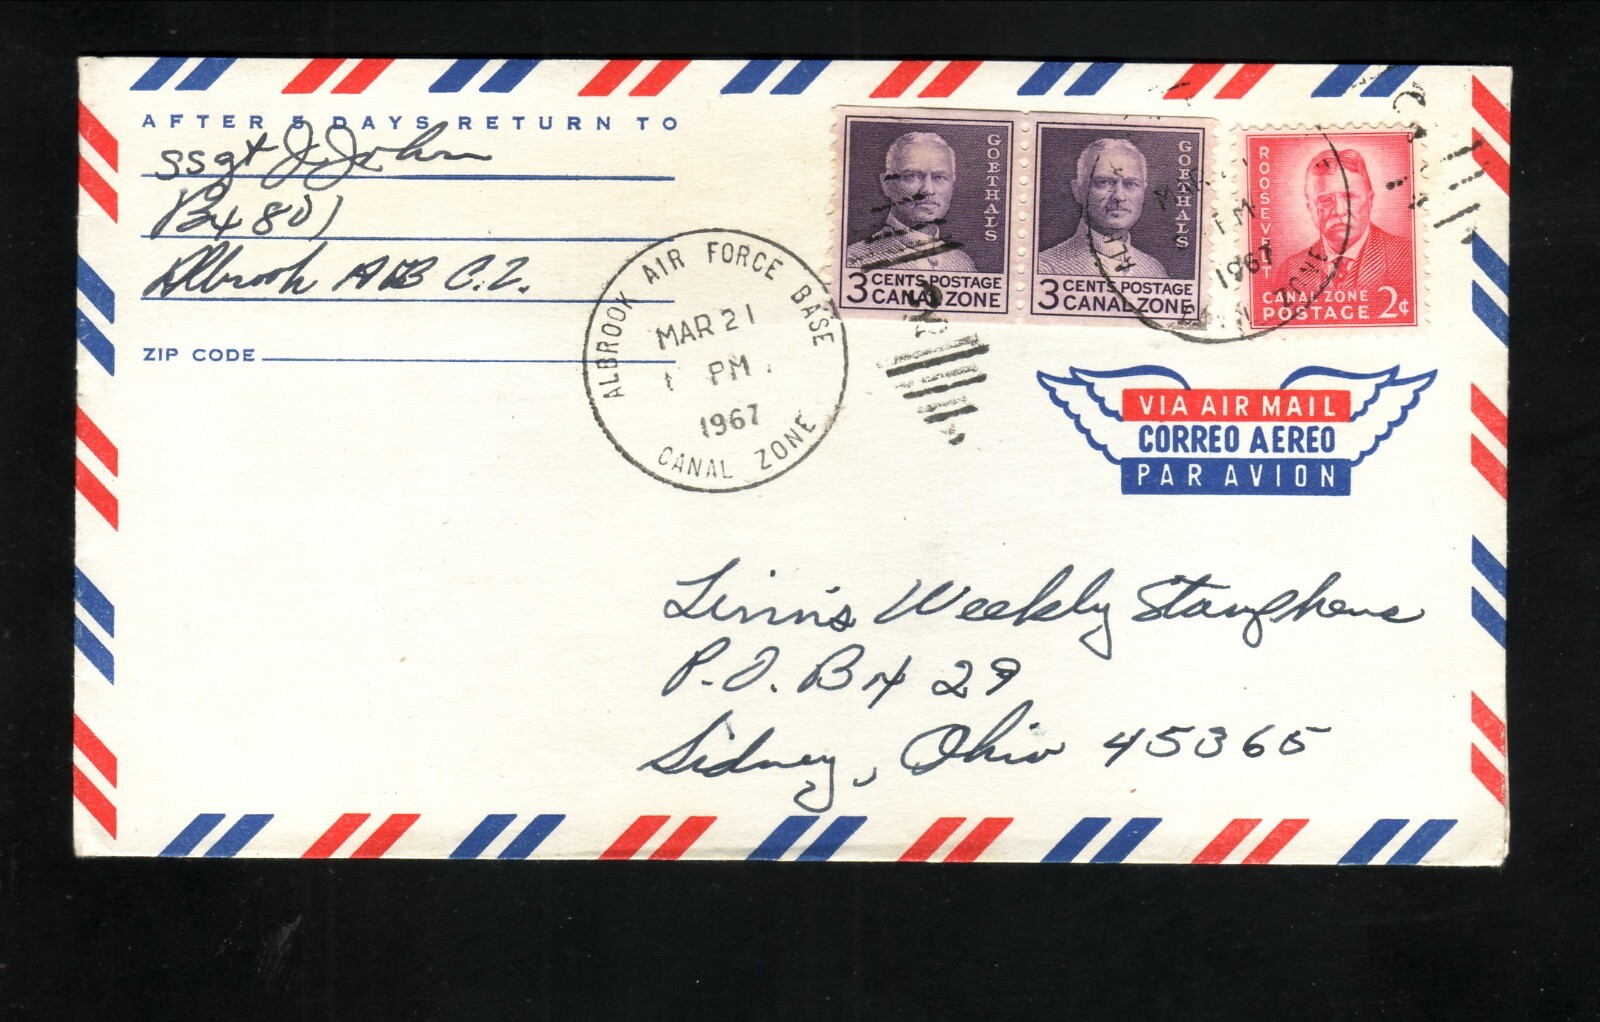 AFTER 5 DAYS RETURN TO
SSgt J. John
Bx 801
Albrook AFB C.Z.
ZIP CODE
ALBROOK AIR FORCE BASE
MAR 21
1 PM
1967
CANAL ZONE
GOETHALS
3 CENTS POSTAGE
CANAL ZONE
GOETHALS
3 CENTS POSTAGE
CANAL ZONE
PM
1967
CANAL ZONE
ROOSEVELT
CANAL ZONE
POSTAGE 2¢
VIA AIR MAIL
CORREO AEREO
PAR AVION
Linn's Weekly Stamp News
P.O. Bx 29
Sidney, Ohio 45365